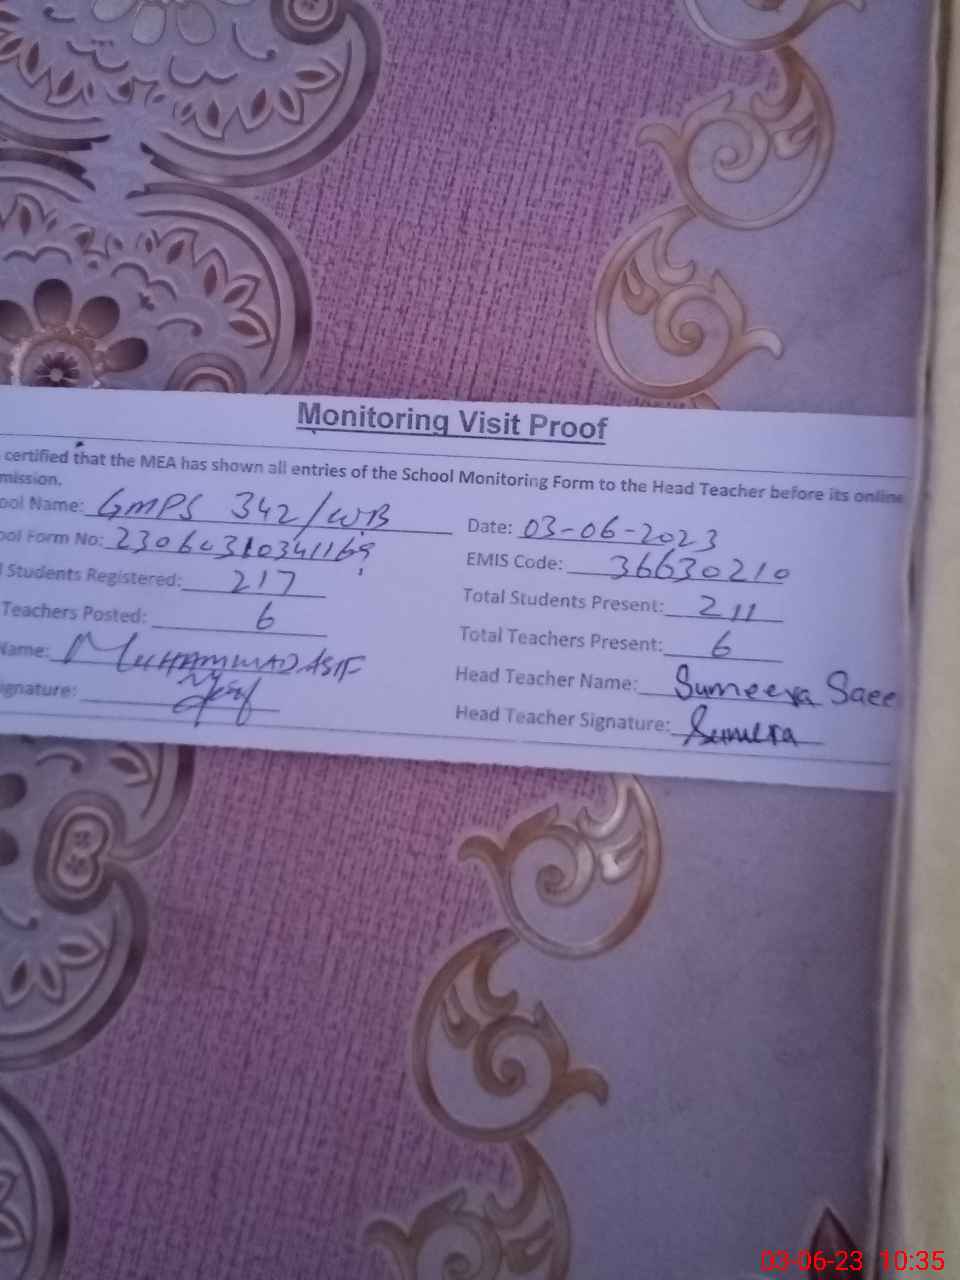 Monitoring Visit Proof
certified that the MEA has shown all entries of the School Monitoring Form to the Head Teacher before its online
mission.
ool Name: GMPS 342/WB Date: 03-06-2023
ool Form No: 23060310341169 EMIS Code: 36630210
l Students Registered: 217 Total Students Present: 211
Teachers Posted: 6 Total Teachers Present: 6
Name: MUHAMMAD ASIF Head Teacher Name: Sumeera Saee
ignature: Head Teacher Signature: Sumera
03-06-23 10:35